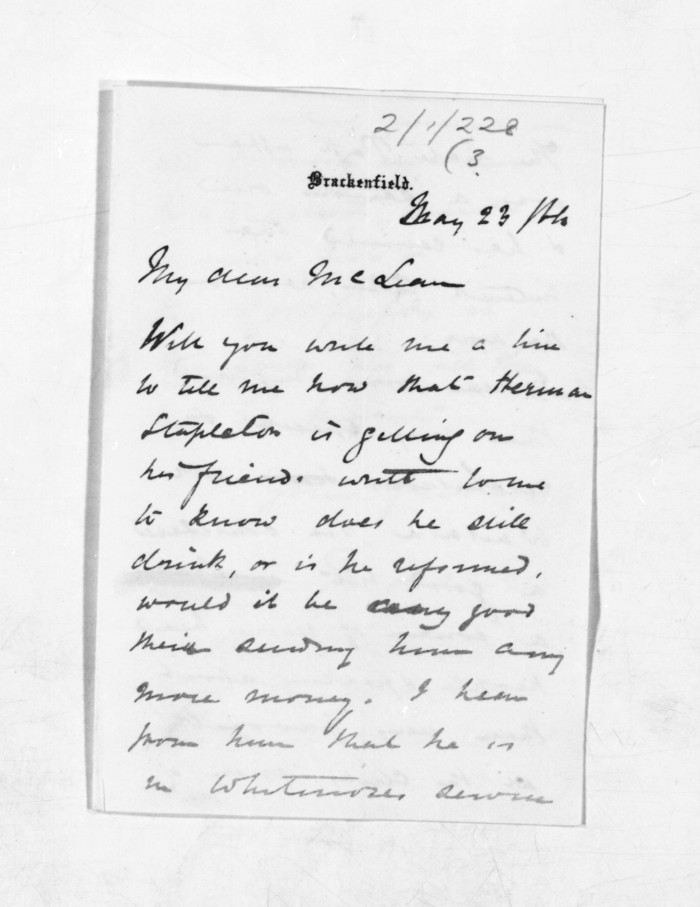 2/1/228
(3.
Brackenfield.
May 23
My dear McLean
Will you write me a line
to tell me how that Herman
Stapleton is getting on
his friends write to me
to know does he still
drink, or is he reformed,
would it be any good
their sending him any
more money. I hear
from him that he is
in Whitmores service